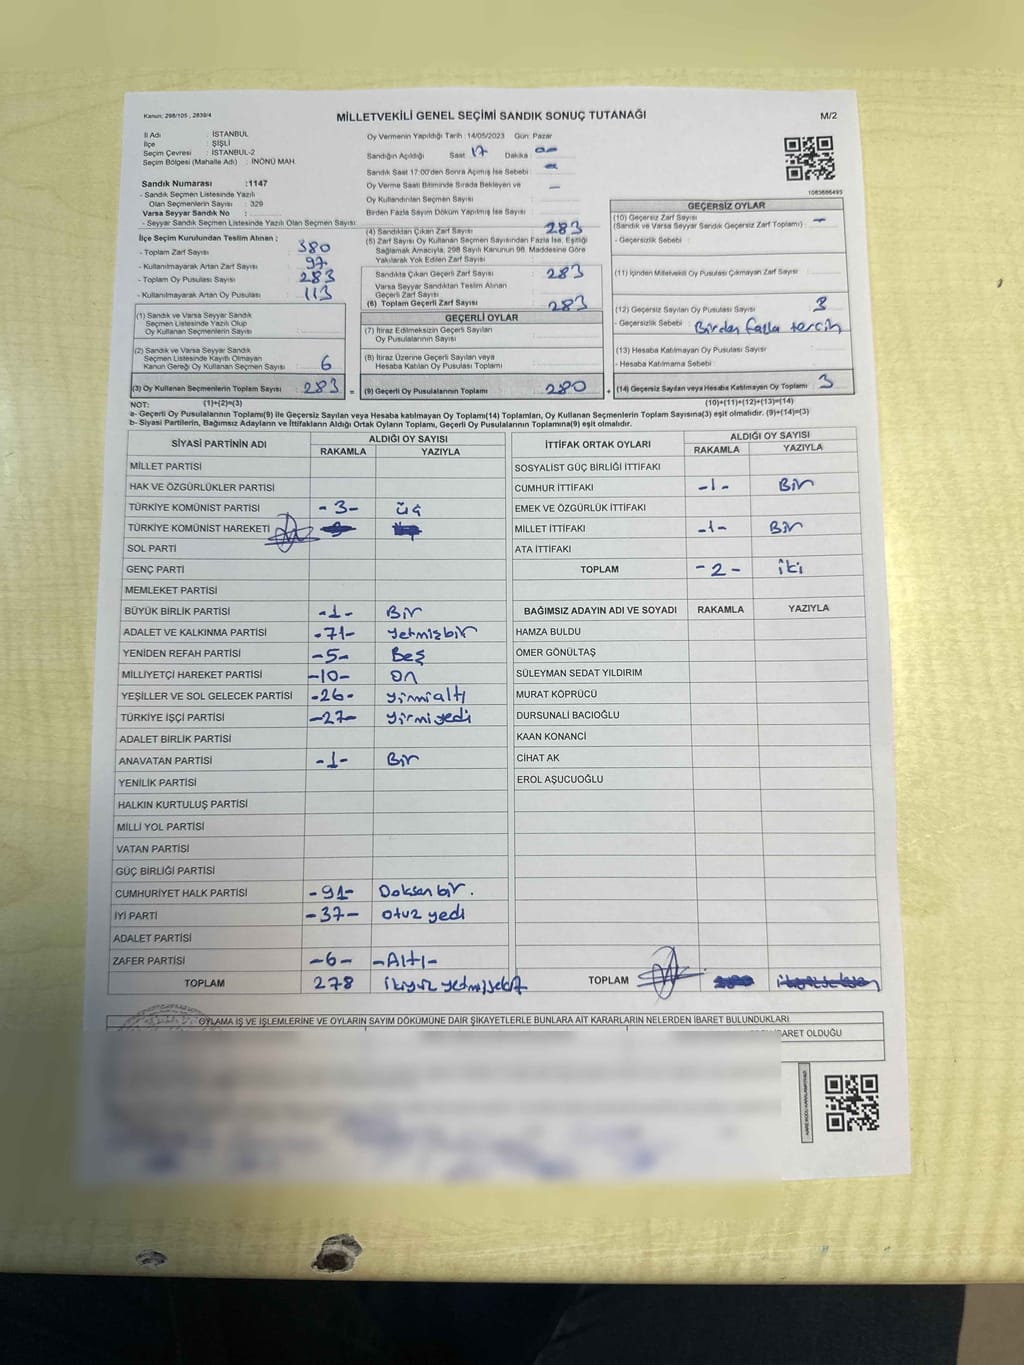 Kanun: 298/105 , 2839/4
MİLLETVEKİLİ GENEL SEÇİMİ SANDIK SONUÇ TUTANAĞI
M/2
İl Adı : İSTANBUL
İlçe : ŞİŞLİ
Seçim Çevresi : İSTANBUL-2
Seçim Bölgesi (Mahalle Adı) : İNÖNÜ MAH.
Oy Vermenin Yapıldığı Tarih :14/05/2023 Gün: Pazar
Sandığın Açıldığı Saat 17 Dakika :
Sandık Saat 17:00'den Sonra Açılmış İse Sebebi :
Oy Verme Saati Bitiminde Sırada Bekleyen ve
Oy Kullandırılan Seçmen Sayısı
Birden Fazla Sayım Döküm Yapılmış İse Sayısı :
1083666493
Sandık Numarası :1147
- Sandık Seçmen Listesinde Yazılı
Olan Seçmenlerin Sayısı : 329
Varsa Seyyar Sandık No :
- Seyyar Sandık Listesinde Yazılı Olan Seçmen Sayısı
İlçe Seçim Kurulundan Teslim Alınan :
- Toplam Zarf Sayısı : 380
- Kullanılmayarak Artan Zarf Sayısı : 97
- Toplam Oy Pusulası Sayısı : 283
- Kullanılmayarak Artan Oy Pusulası : 113
(1) Sandık ve Varsa Seyyar Sandık
Seçmen Listesinde Yazılı Olup
Oy Kullanan Seçmenlerin Sayısı :
(2) Sandık ve Varsa Seyyar Sandık
Seçmen Listesinde Kayıtlı Olmayan
Kanun Gereği Oy Kullanan Seçmen Sayısı : 6
(3) Oy Kullanan Seçmenlerin Toplam Sayısı : 283 =
(4) Sandıktan Çıkan Zarf Sayısı : 283
(5) Zarf Sayısı Oy Kullanan Seçmen Sayısından Fazla İse, Eşitliği
Sağlamak Amacıyla; 298 Sayılı Kanunun 98. Maddesine Göre
Yakılarak Yok Edilen Zarf Sayısı :
Sandıkta Çıkan Geçerli Zarf Sayısı : 283
Varsa Seyyar Sandıktan Teslim Alınan
Geçerli Zarf Sayısı :
(6) Toplam Geçerli Zarf Sayısı : 283
GEÇERLİ OYLAR
(7) İtiraz Edilmeksizin Geçerli Sayılan
Oy Pusulasının Sayısı :
(8) İtiraz Üzerine Geçerli Sayılan veya
Hesaba Katılan Oy Pusulası Toplamı :
(9) Geçerli Oy Pusulalarının Toplamı : 280 +
GEÇERSİZ OYLAR
(10) Geçersiz Zarf Sayısı : -
(Sandık ve Varsa Seyyar Sandık Geçersiz Zarf Toplamı)
- Geçersizlik Sebebi :
(11) İçinden Milletvekili Oy Pusulası Çıkmayan Zarf Sayısı :
(12) Geçersiz Sayılan Oy Pusulası Sayısı : 3
- Geçersizlik Sebebi : Birden fazla tercih
(13) Hesaba Katılmayan Oy Pusulası Sayısı :
- Hesaba Katılmama Sebebi :
(14) Geçersiz Sayılan veya Hesaba Katılmayan Oy Toplamı : 3
NOT: (1)+(2)=(3) (10)+(11)+(12)+(13)=(14)
a- Geçerli Oy Pusulalarının Toplamı(9) ile Geçersiz Sayılan veya Hesaba katılmayan Oy Toplamı(14) Toplamları, Oy Kullanan Seçmenlerin Toplam Sayısına(3) eşit olmalıdır. (9)+(14)=(3)
b- Siyasi Partilerin, Bağımsız Adayların ve İttifakların Aldığı Ortak Oyların Toplamı, Geçerli Oy Pusulalarının Toplamına(9) eşit olmalıdır.
SİYASİ PARTİNİN ADI ALDIĞI OY SAYISI
RAKAMLA YAZIYLA
MİLLET PARTİSİ
HAK VE ÖZGÜRLÜKLER PARTİSİ
TÜRKİYE KOMÜNİST PARTİSİ -3- üç
TÜRKİYE KOMÜNİST HAREKETİ
SOL PARTİ
GENÇ PARTİ
MEMLEKET PARTİSİ
BÜYÜK BİRLİK PARTİSİ -1- Bir
ADALET VE KALKINMA PARTİSİ -71- Yetmişbir
YENİDEN REFAH PARTİSİ -5- Beş
MİLLİYETÇİ HAREKET PARTİSİ -10- On
YEŞİLLER VE SOL GELECEK PARTİSİ -26- yirmialtı
TÜRKİYE İŞÇİ PARTİSİ -27- yirmiyedi
ADALET BİRLİK PARTİSİ
ANAVATAN PARTİSİ -1- Bir
YENİLİK PARTİSİ
HALKIN KURTULUŞ PARTİSİ
MİLLİ YOL PARTİSİ
VATAN PARTİSİ
GÜÇ BİRLİĞİ PARTİSİ
CUMHURİYET HALK PARTİSİ -91- Doksanbir.
İYİ PARTİ -37- otuz yedi
ADALET PARTİSİ
ZAFER PARTİSİ -6- -Altı-
TOPLAM 278 ikiyüz yetmişsekiz
İTTİFAK ORTAK OYLARI ALDIĞI OY SAYISI
RAKAMLA YAZIYLA
SOSYALİST GÜÇ BİRLİĞİ İTTİFAKI
CUMHUR İTTİFAKI -1- Bir
EMEK VE ÖZGÜRLÜK İTTİFAKI
MİLLET İTTİFAKI -1- Bir
ATA İTTİFAKI
TOPLAM -2- iki
BAĞIMSIZ ADAYIN ADI VE SOYADI RAKAMLA YAZIYLA
HAMZA BULDU
ÖMER GÖNÜLTAŞ
SÜLEYMAN SEDAT YILDIRIM
MURAT KÖPRÜCÜ
DURSUNALİ BACIOĞLU
KAAN KONANCİ
CİHAT AK
EROL AŞUCUOĞLU
TOPLAM
OYLAMA İŞ VE İŞLEMLERİNE VE OYLARIN SAYIM DÖKÜMÜNE DAİR ŞİKAYETLERLE BUNLARA AİT KARARLARIN NELERDEN İBARET BULUNDUKLARI
İBARET OLDUĞU